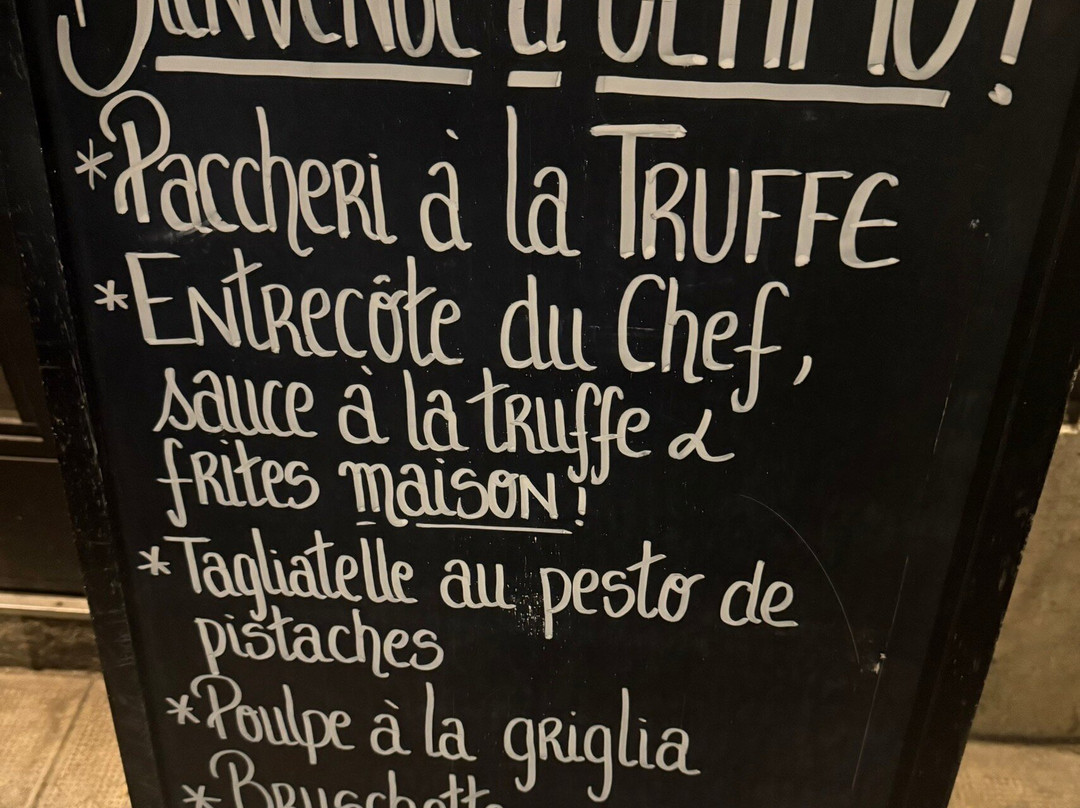 Bienvenue à
* Paccheri à la TRUFFE
* Entrecôte du Chef,
sauce à la truffe &
frites maison !
* Tagliatelle au pesto de
pistaches
* Poulpe à la griglia
* Bruschette